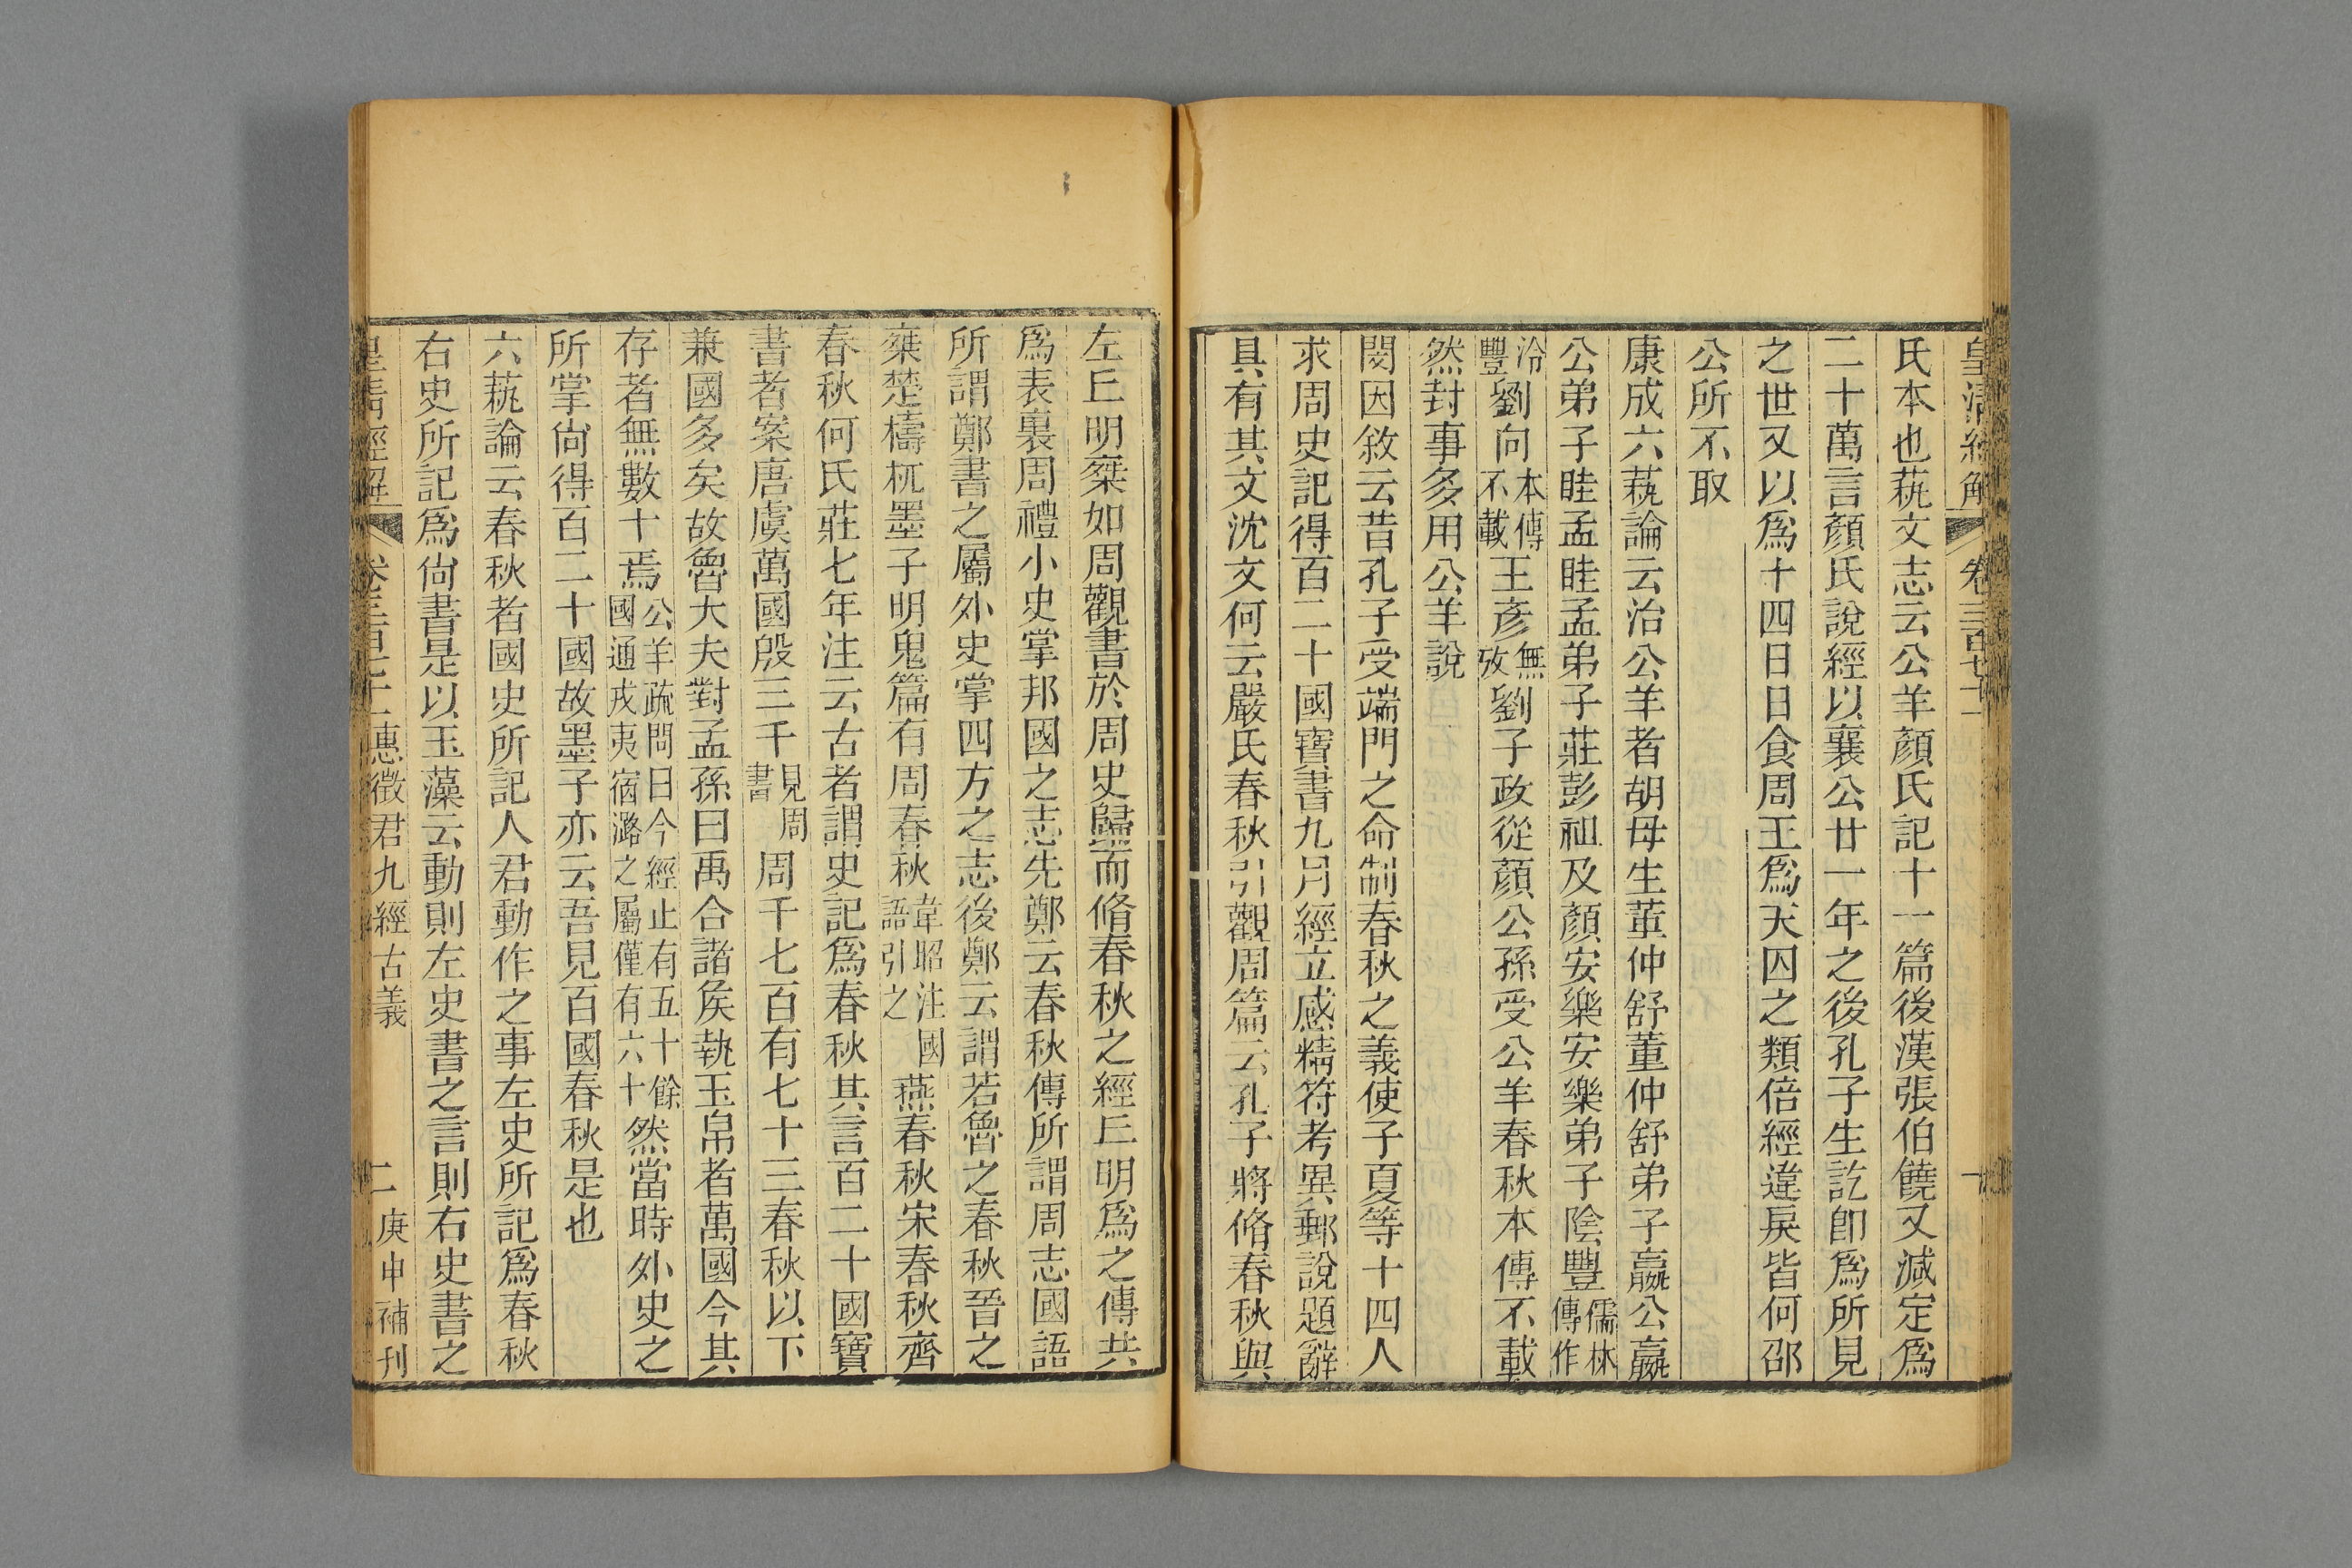 皇清經解 卷三百七十一
氏本也蓺文志云公羊顏氏記十一篇後漢張伯饒又減定爲
二十萬言顏氏說經以襄公廿一年之後孔子生訖卽爲所見
之世又以爲十四日日食周王爲天囚之類倍經違戾皆何邵
公所不取
康成六蓺論云治公羊者胡母生董仲舒董仲舒弟子嬴公嬴
公弟子眭孟眭孟弟子莊彭祖及顏安樂安樂弟子陰豐儒林傳作
泠豐劉向本傳不載王彥無攷劉子政從顏公孫受公羊春秋本傳不載
然封事多用公羊說
閔因敘云昔孔子受端門之命制春秋之義使子夏等十四人
求周史記得百二十國寶書九月經立感精符考異郵說題辭
具有其文沈文何云嚴氏春秋引觀周篇云孔子將脩春秋與
左丘明椉如周觀書於周史歸而脩春秋之經丘明爲之傳共
爲表裏周禮小史掌邦國之志先鄭云春秋傳所謂周志國語
所謂鄭書之屬外史掌四方之志後鄭云謂若魯之春秋晉之
椉楚檮杌墨子明鬼篇有周春秋韋昭注國語引之燕春秋宋春秋齊
春秋何氏莊七年注云古者謂史記爲春秋其言百二十國寶
書者案唐虞萬國殷三千見周書周千七百有七十三春秋以下
兼國多矣故魯大夫對孟孫曰禹合諸矦執玉帛者萬國今其
存者無數十焉公羊疏問曰今經止有五十餘國通戎夷宿潞之屬僅有六十然當時外史之
所掌尙得百二十國故墨子亦云吾見百國春秋是也
六蓺論云春秋者國史所記人君動作之事左史所記爲春秋
右史所記爲尙書是以玉藻云動則左史書之言則右史書之
皇清經解 卷三百七十一 惠徵君九經古義 二 庚申補刊